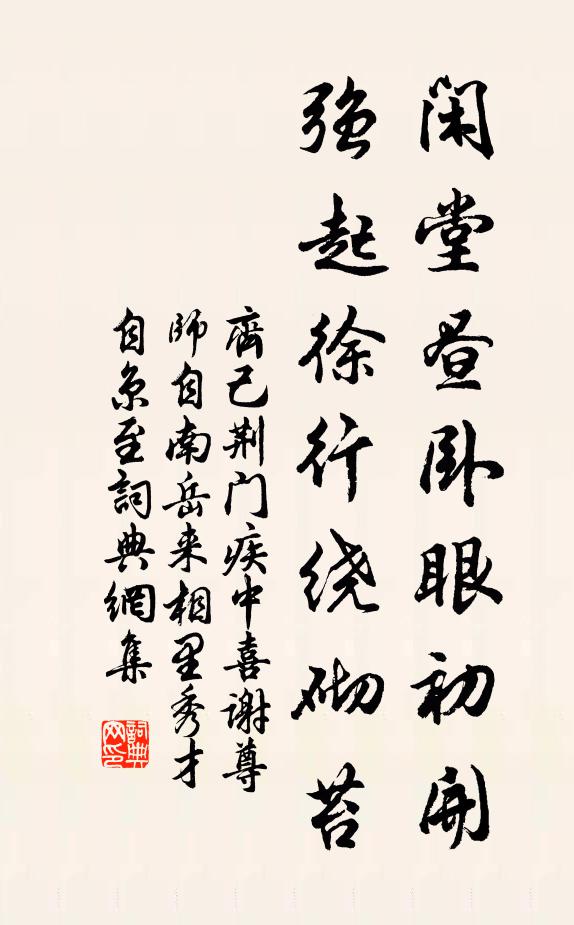 闲堂昼卧眼初开
强起徐行绕砌苔
齊己荆门疾中喜谢尊
師自南岳来相里秀才
自京至詞典網集
詞典网印